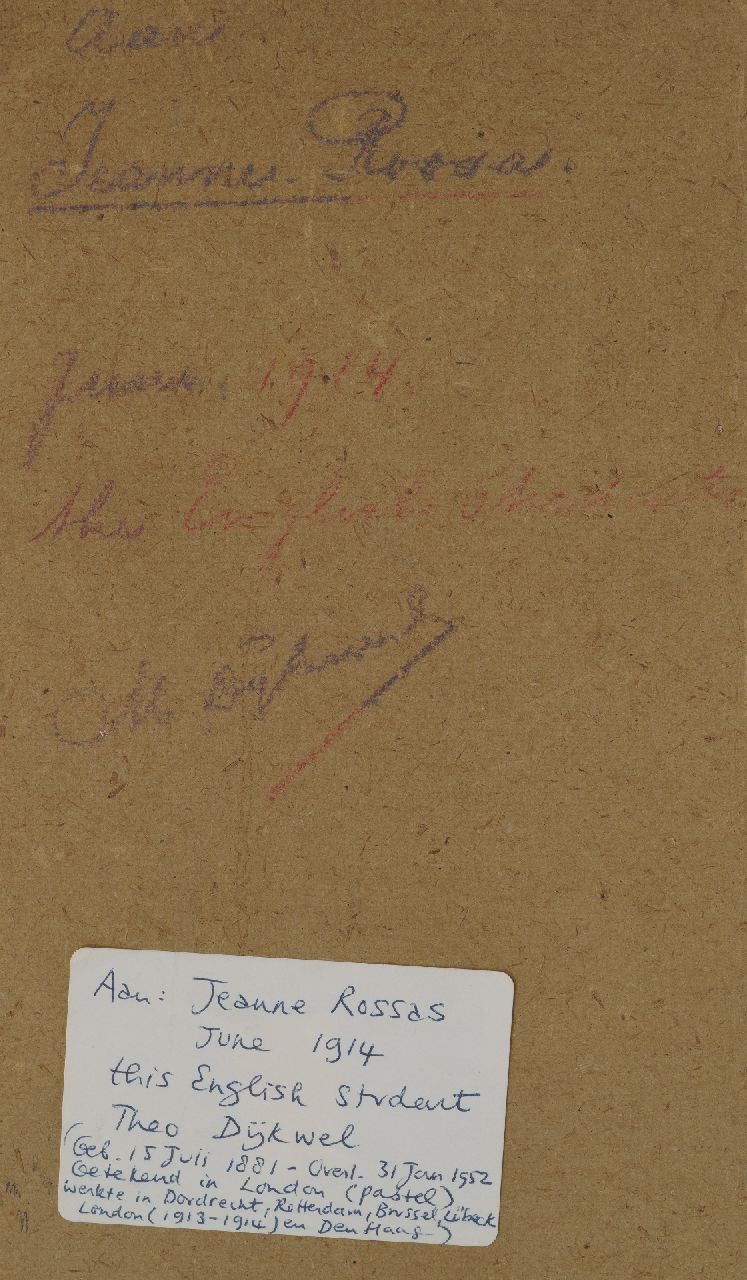 Aan
Jeanne Rossas.
June 1914.
the English
Aan: Jeanne Rossas
June 1914
this English student
Theo Dijkwel
(Geb. 15 Juli 1881 - Overl. 31 Jan 1952
Getekend in London (pastel)
werkte in Dordrecht, Rotterdam, Brussel, Lübeck
London (1913-1914) en Den Haag-)